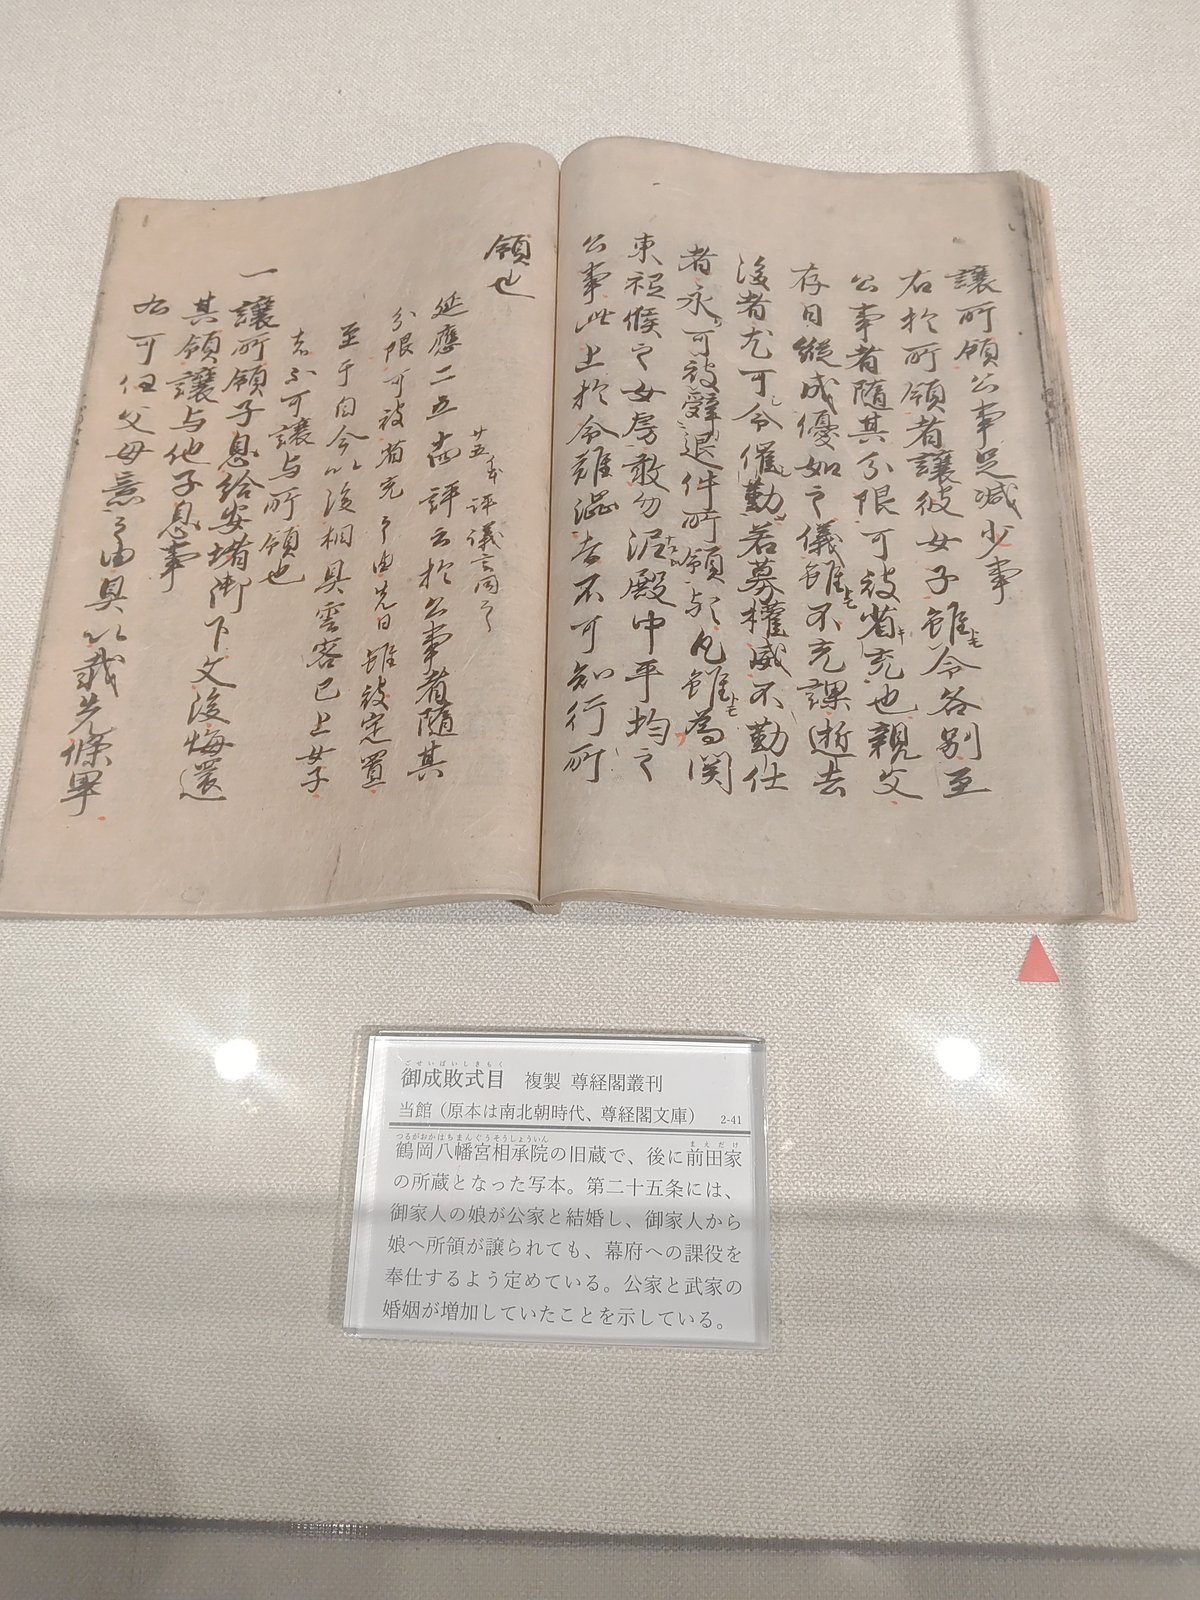 讓所領公事足減少事
右於所領者讓彼女子雖令各別至
公事者隨其分限可被省充也親父
存日縱成優如之儀雖不充課逝去
後者尤可令催勤若募權威不勤仕
者永可被辞退件所領歟凡雖為関
東祗候之女房敢勿泥殿中平均之
公事此上於令難渋者不可知行所
領也
延應二五 評云於公事者隨其
廿五 評議云同之
分限可被省充之由先日雖被定置
至于自今以後相具雲客已上女子
者不可讓与所領也
一讓所領子息給安堵御下文後悔還
其領讓与他子息事
右可任父母意之由具以載先條畢
御成敗式目 複製 尊経閣叢刊
ごせいばいしきもく
当館(原本は南北朝時代、尊経閣文庫) 2-41
つるがおかはちまんぐうそうしょういん まえだけ
鶴岡八幡宮相承院の旧蔵で、後に前田家
の所蔵となった写本。第二十五条には、
御家人の娘が公家と結婚し、御家人から
娘へ所領が譲られても、幕府への課役を
奉仕するよう定めている。公家と武家の
婚姻が増加していたことを示している。